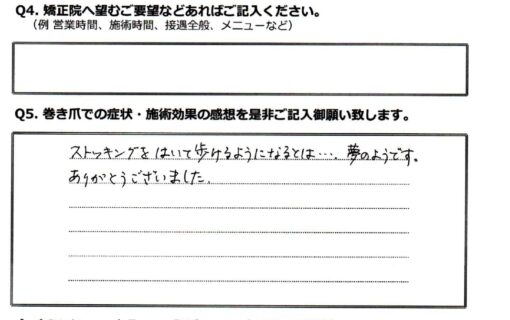 Q4. 矯正院へ望むご要望などあればご記入ください。
（例 営業時間、施術時間、接遇全般、メニューなど）
Q5. 巻き爪での症状・施術効果の感想を是非ご記入御願い致します。
ストッキングをはいて歩けるようになるとは…。夢のようです。
ありがとうございました。